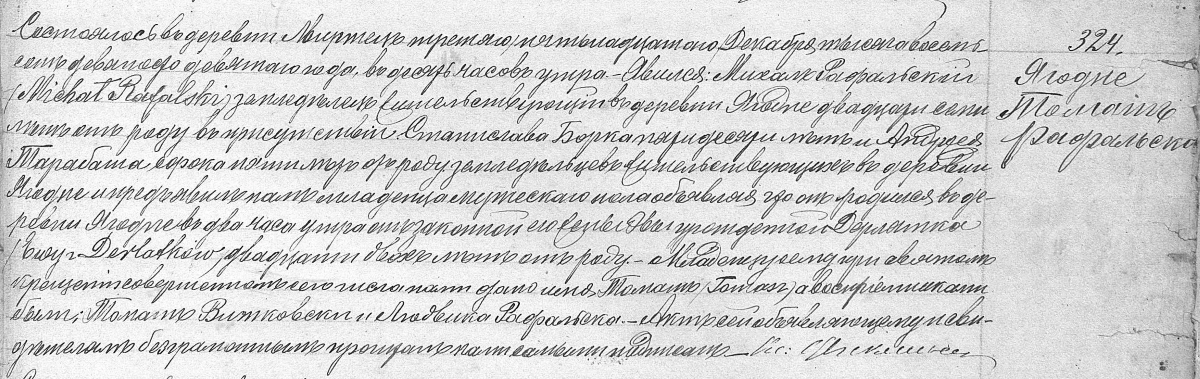 Состоялось въ деревни Миртекъ третяго/пятьнадцатаго Декабря тысяча восемь-
семъ девяносто девятаго года, въ десять часовъ утра – Явился: Михалъ Рафальскій
(Michał Rafalski) земледѣлецъ жительствующій въ деревни Ягодне двадцати семи
лѣтъ отъ роду въ присутствіи Станислава Борка пяти десяти лѣтъ и Андрея
Тарабаша, сорока пяти лѣтъ отъ роду, земледѣльцевъ жительствующихъ въ деревни
Ягодне и предъявилъ намъ младенца мужескаго пола объявляя что онъ родился въ де-
ревни Ягодне въ два часа утра отъ законной его жены Эвы урожденной Дерлатка
(Ewy z Derlatków) двадцати двохъ лѣтъ отъ роду – Младенцу сему при святомъ
крещеніи совершенномъ сего числа дано имя Томашъ (Tomasz) а воспріемниками
были: Томашъ Витковски и Людвика Рафальска. – Актъ сей объявляющему и сви-
дѣтелямъ безграмотнымъ прочитанъ нами самыми подписанъ – Кс:
324.
Ягодне
Томашъ
Рафальски